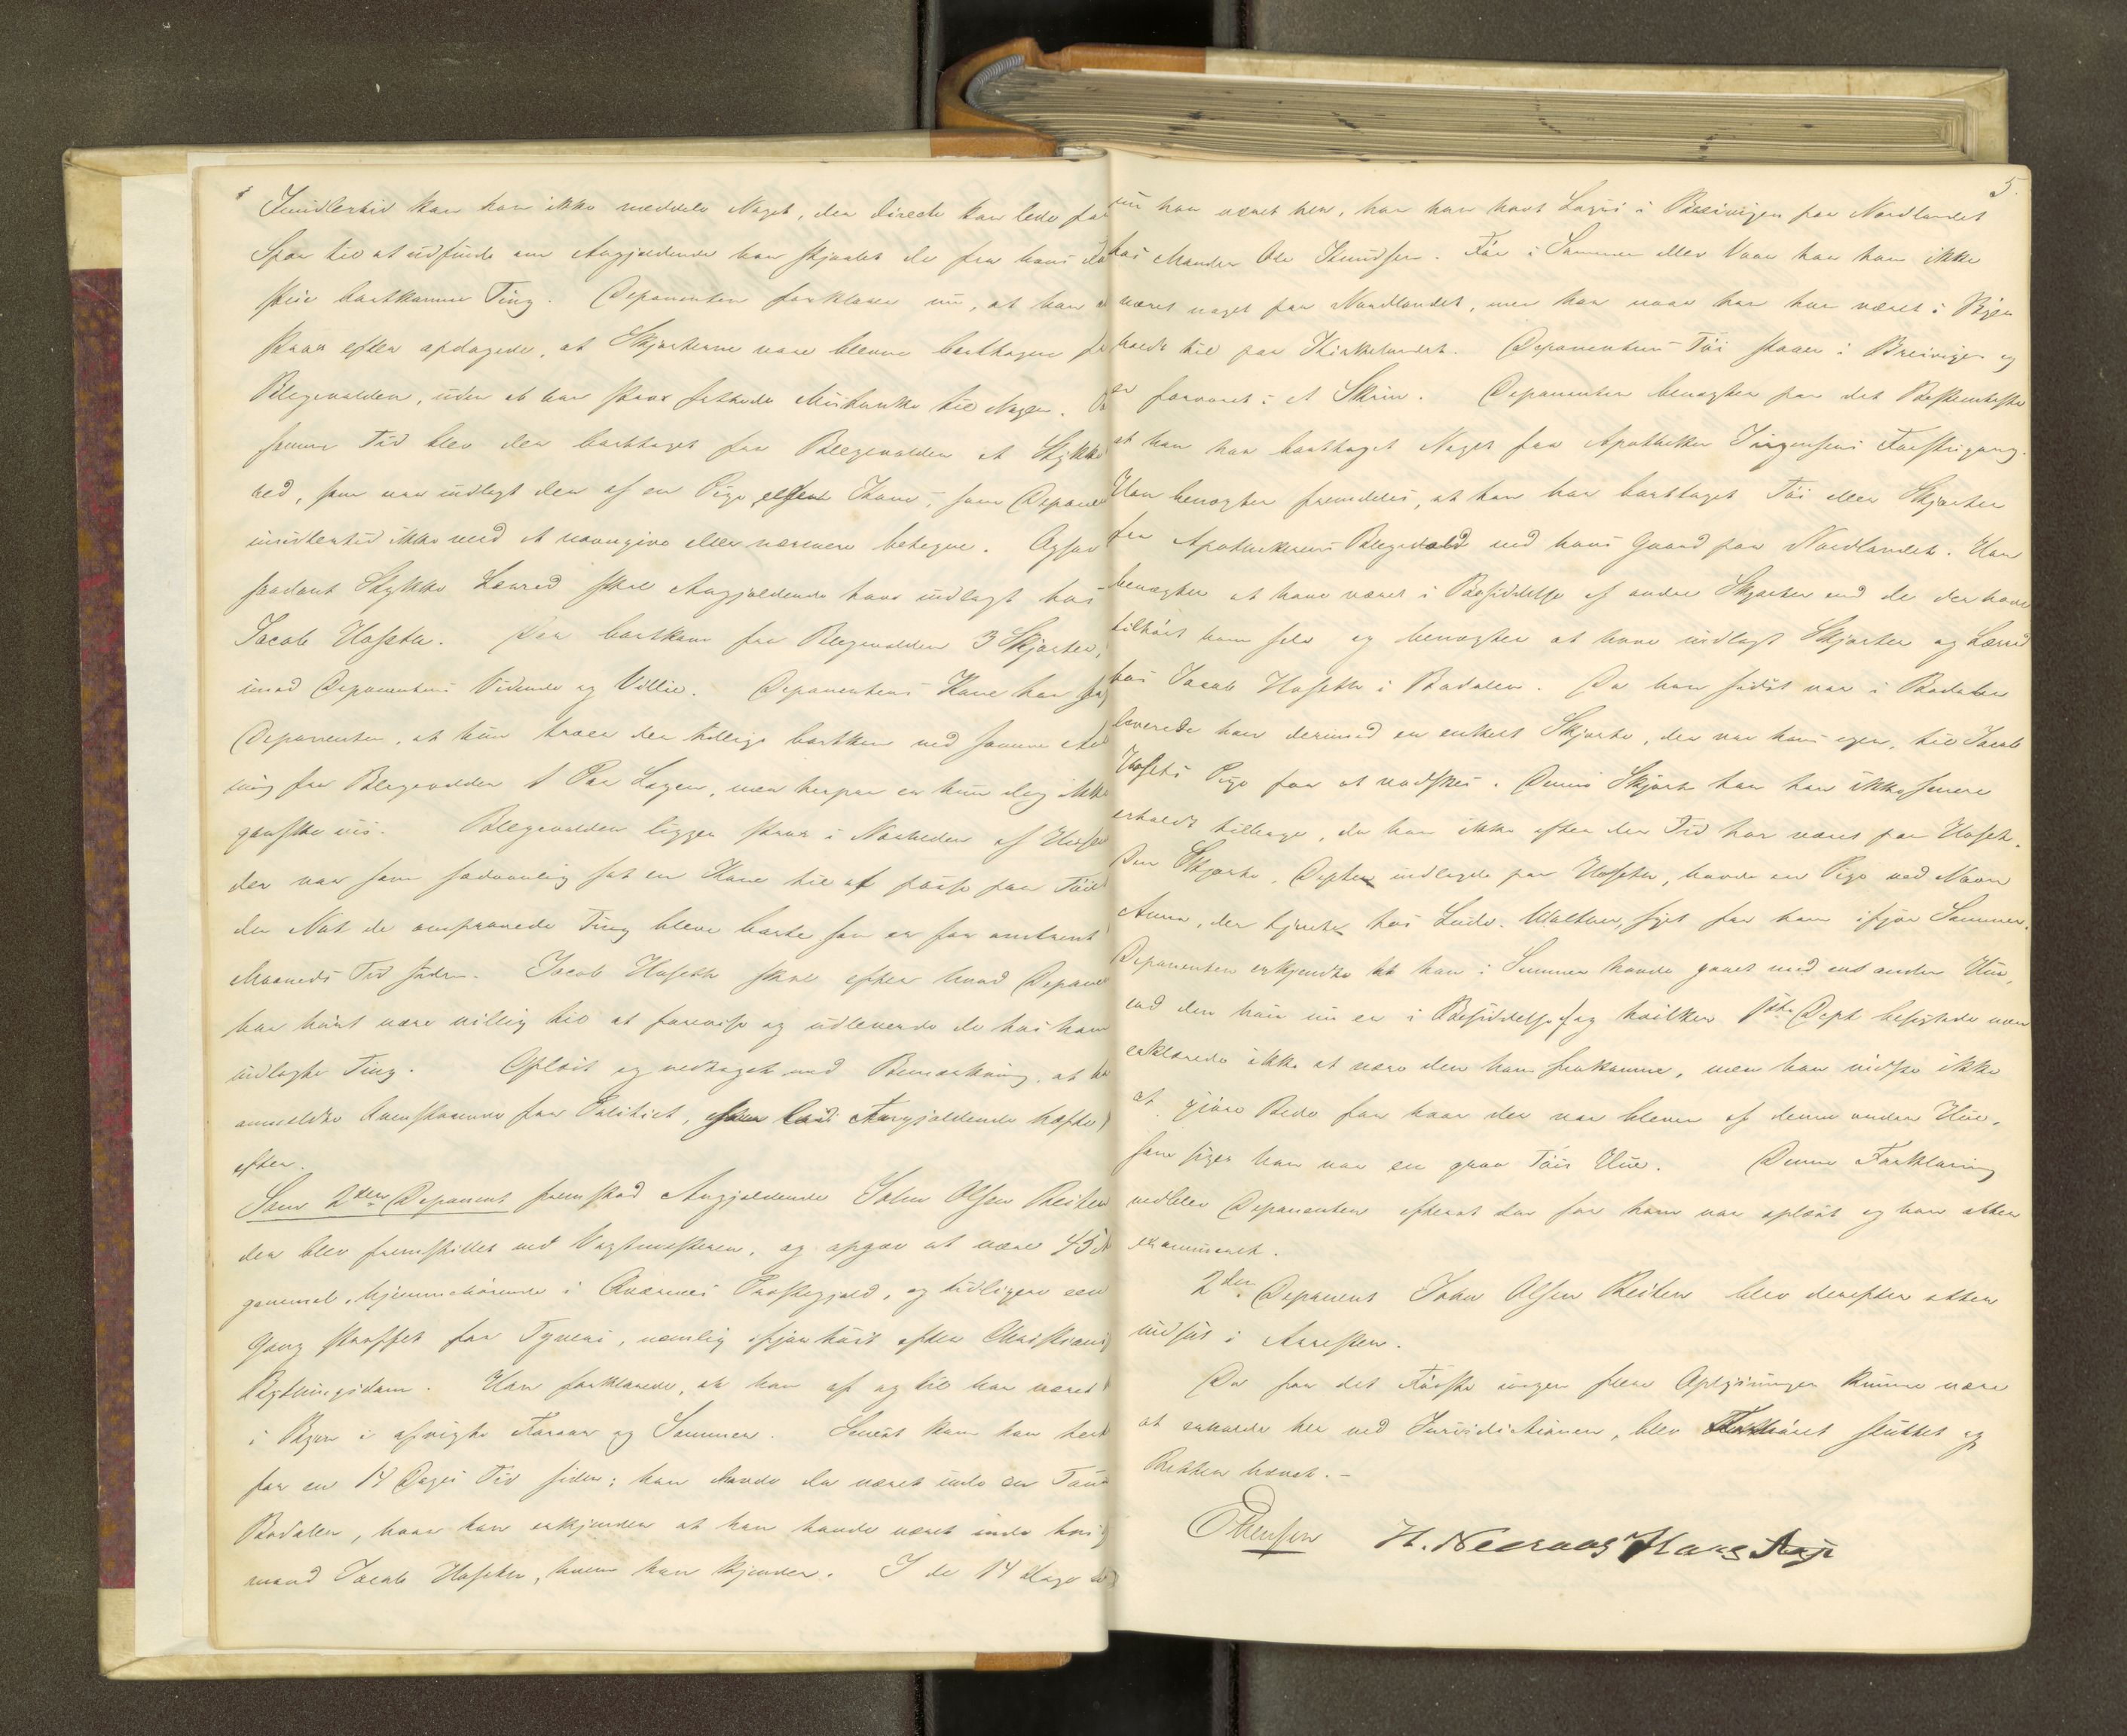 Imidlertid kan han ikke meddele Noget, der directe kan lede paa
Spor til at udfinde om Angjeldende har stjaalet de fra hans
bortkomne Ting. Deponenten forklarer nu, at han
strax efter opdagede, at Skjorterne vare blevne borttagne fra
Blegevolden, uden at han strax fattede Mistanke til Nogen.
samme Tid blev der borttaget fra Blegevolden et Stykke
red, som var udlagt der af en Pige eller Kone, som Depone
imidlertid ikke veed at navngive eller nærmere betegne. Ogsaa
saadant Stykke Lærred skal Angjeldende have indlagt hos
Jacob Hoseth. Der bortkom fra Blegevolden 3 Skjorter,
imod Deponentens Vidende og Villie. Deponentens Kone har
Deponenten, at hun troer der tillige bortkom ved samme
ning fra Blegevolden et Par Lagen, men herpaa er hun dog ikke
ganske vis. Blegevolden ligger strax i Nærheden af Huset
der var som sædvanlig sat en Kone til at passe paa Töiet
den Nat de omprovede Ting bleve borte som er for omtrent
Maaneds Tid siden. Jacob Hoseth skal efter hvad Depone
har hört være villig til at forevise og udlevere de hos ham
indlagte Ting. Oplæst og vedtaget med Bemærkning, at
anmeldte Ovenstaaende for Politiet, Angjeldende hæftet
efter.
Som 2den Deponent fremstod Angjeldende John Olsen Reiten
der blev fremstillet ved Vagtmesteren, og opgav at være 45
gammel, hjemmehörende i Qværnes Præstegjæld, og tidligere een
Gang straffet for Tyveri, nemlig ifjor höst efter Christiansunds
Bythingsdom. Han forklarede, at han af og til har været
i Byen i afvigte Foraar og Sommer. Senest kom han hertil
for en 14 Dages Tid siden; han havde da været inde en Tour
Bodalen, hvor han erkjender at han havde været inde hos
mand Jacob Hoseth, hvem han kjender. I de 14 Dage
5.
nu har været her, har han havt Logis i Brevigen paa Nordlandet
hos Manden Ole Knudsen. För i Sommer eller Vaar har han ikke
været noget paa Nordlandet, men har naar han har været i Byen
holdt til paa Kirkelandet. Deponentens Töi staaer i Breivigen og
er forvaret i et Skrin. Deponenten benægter paa det Bestemteste
at han har borttaget Noget fra Apotheker Jürgensens Forstuegang.
Han benægter fremdeles, at han har borttaget Töi eller Skjorter
fra Apothekerens Blegevold ved hans Gaard paa Nordlandet. Han
benægter at have været i Besiddelse af andre Skjorter end de der have
tilhört ham selv og benægter at have indlagt Skjorter og Lærred
hos Jacob Hoseth i Bodalen. Da han sidst var i Bodalen
leverede han derimod en enkelt Skjorte, der var hans egen, til Jacob
Hoseths Pige for at vadskes. Denne Skjorte har han ikke senere
erholdt tilbage, da han ikke efter den Tid har været paa Hoseth.
Den Skjorte, Depten indlagde paa Hoseth, havde en Pige ved Navn
Anna, der tjente hos Walther, syet for ham ifjor Sommer.
Deponenten erkjendte at han i Sommer havde gaaet med en anden Hue,
end den han nu er i Besiddelse af og hvilken 1ste Dept besigtede men
erklærede ikke at være den ham frakomne, men han vidste ikke
at gjöre Rede for hvor der var bleven af denne anden Hue,
som siger han var en graa Töis Hue. Denne Forklaring
vedblev Deponenten efterat den for ham var oplæst og han atter
examineret.
2den Deponent John Olsen Reiten blev derefter atter
indsat i Arresten.
Da for det Förste ingen flere Oplysninger kunne være
at erholde her ved Jurisdictionen, blev Forhöret sluttet og
Retten hævet.-
H. Neeraas Hans